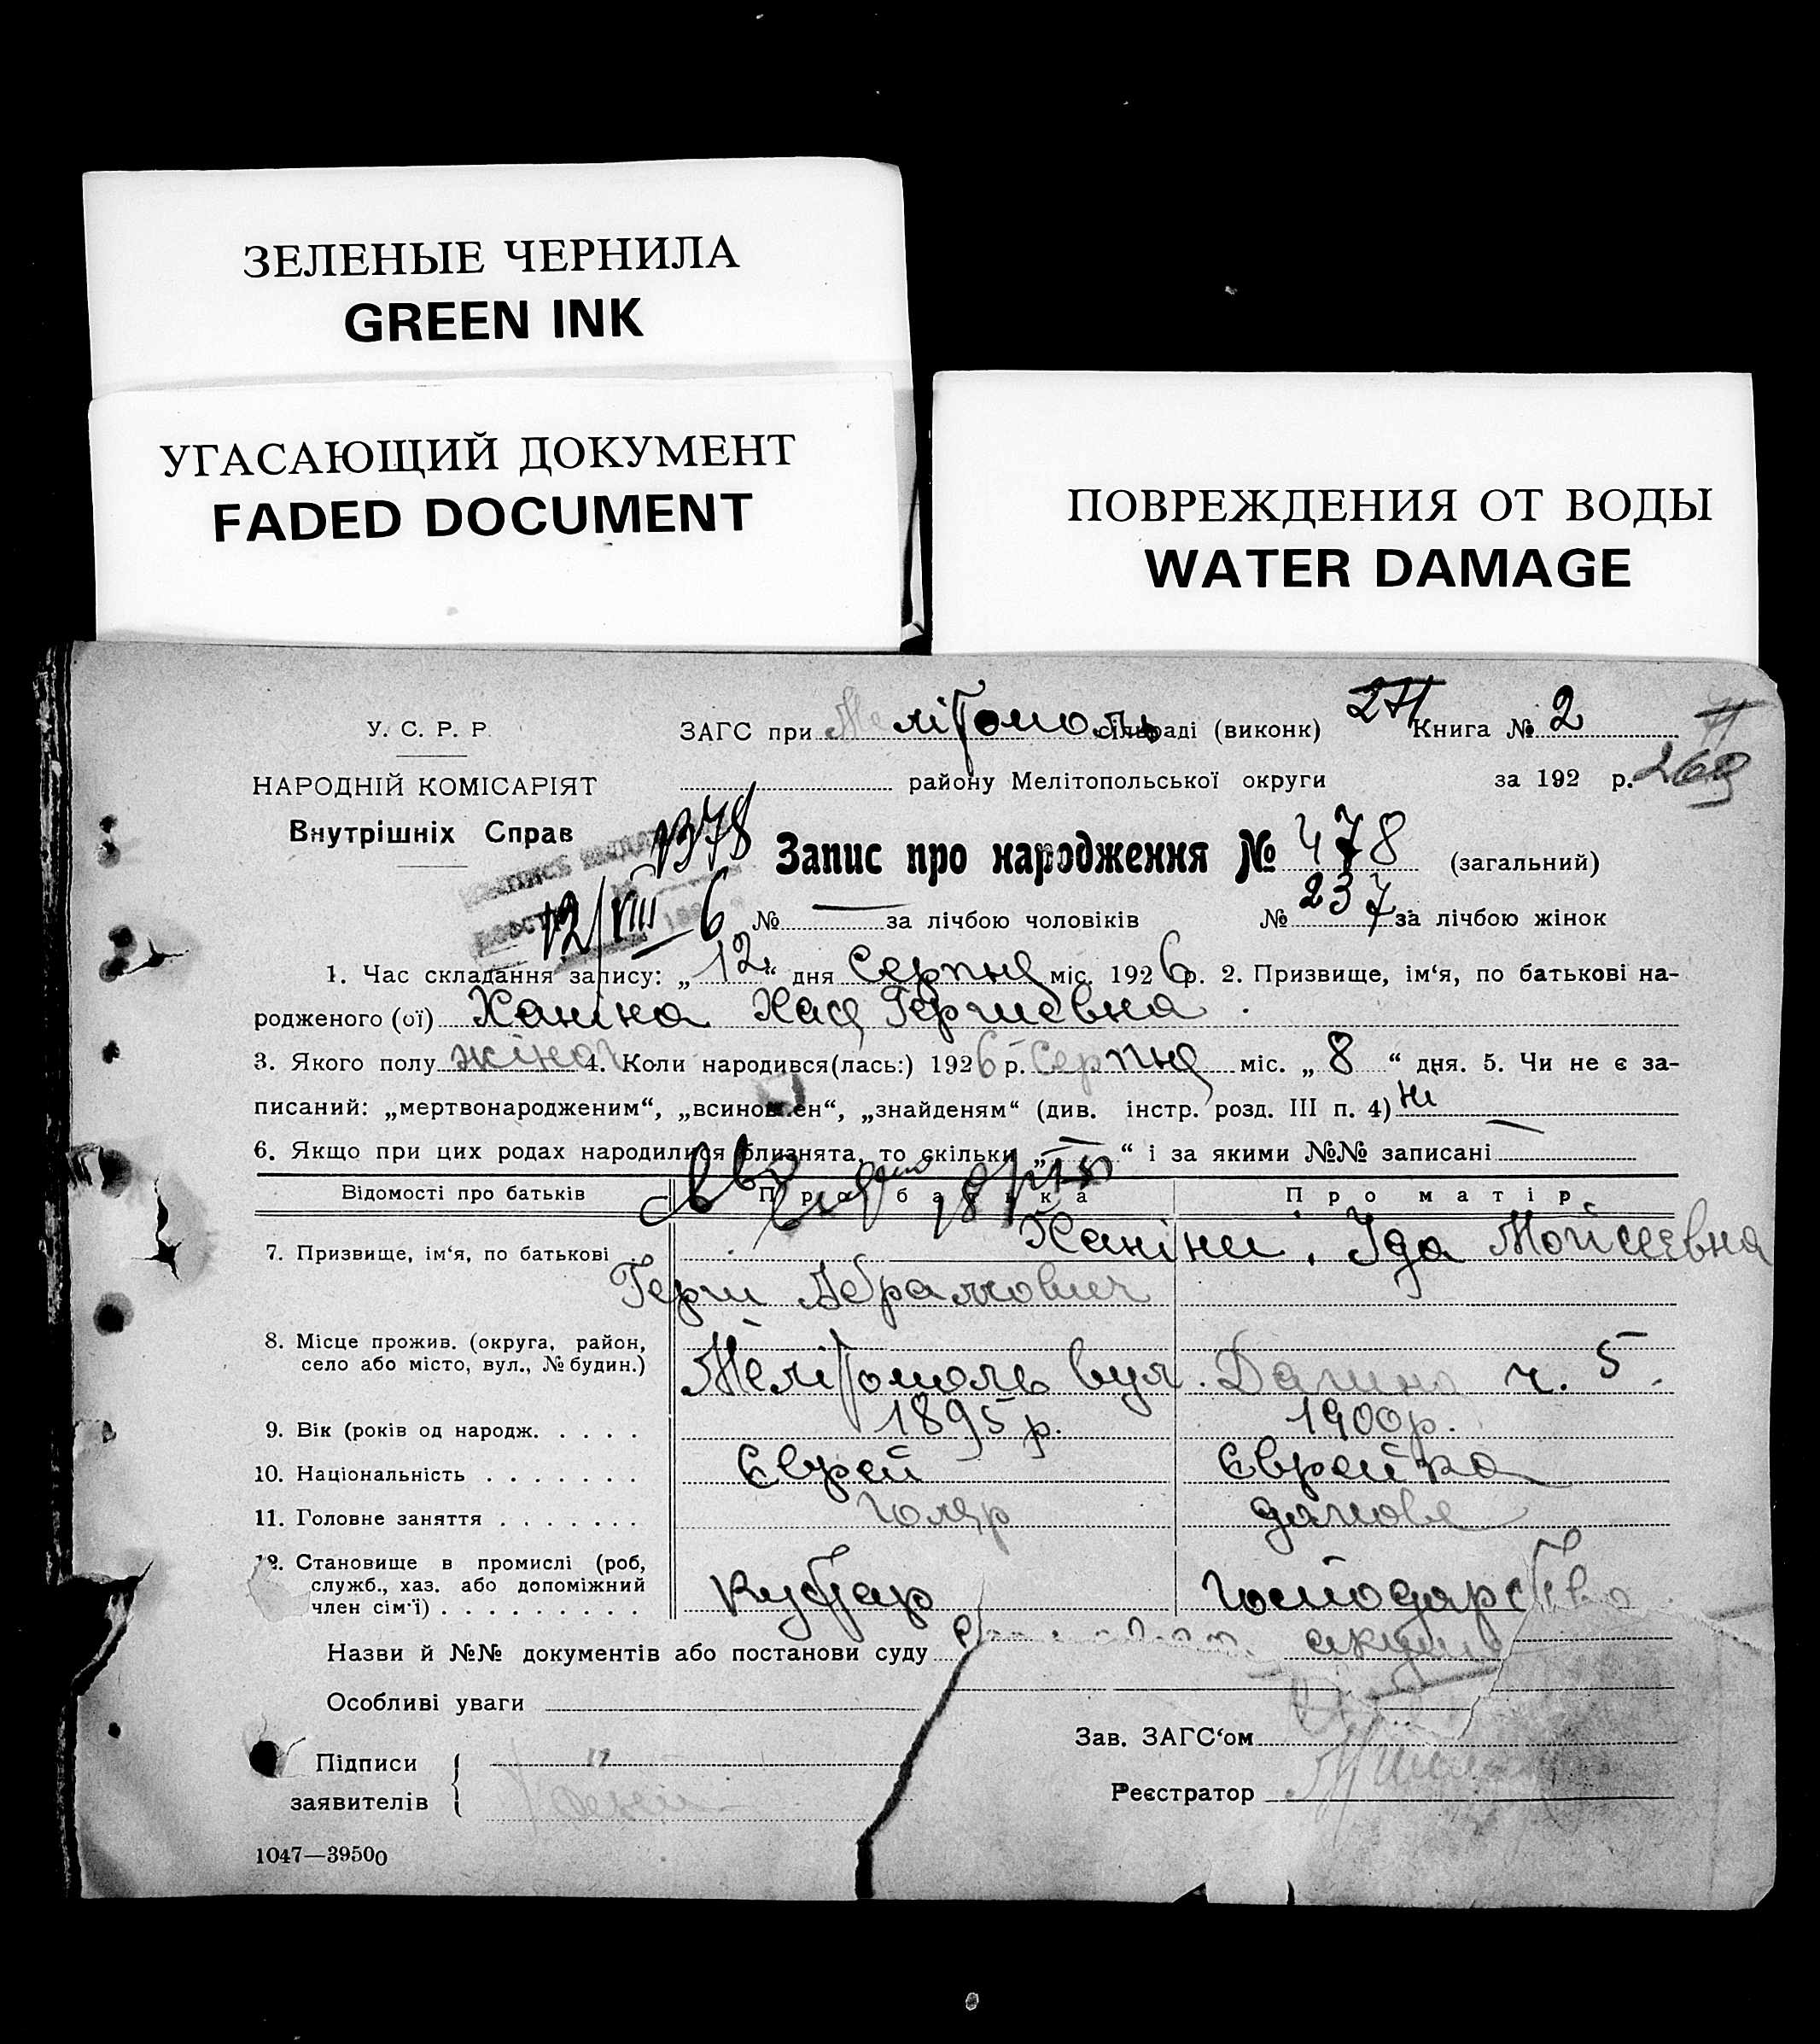 ЗЕЛЕНЫЕ ЧЕРНИЛА
GREEN INK
УГАСАЮЩИЙ ДОКУМЕНТ
FADED DOCUMENT
ПОВРЕЖДЕНИЯ ОТ ВОДЫ
WATER DAMAGE
У. С. Р. Р.
НАРОДНІЙ КОМІСАРІЯТ
Внутрішніх Справ
ЗАГС при Мелітополь сільраді (виконк) Книга № 2
району Мелітопольської округи за 192 р. 269
1378
Запис про народження № 478 (загальний)
12/VIII 6
№ — за лічбою чоловіків № 237 за лічбою жінок
1. Час складання запису: „ 12 “ дня Серпня міс. 1926 р. 2. Призвище, ім‘я, по батькові на-
родженого (ої) Ханіна Хася Гершевна
3. Якого полу жіноч 4. Коли народився(лась:) 1926 р. Серпня міс. „ 8 “ дня. 5. Чи не є за-
писаний: „мертвонародженим“, „всиновлен“, „знайденям“ (див. інстр. розд. III п. 4) ні
6. Якщо при цих родах народилися близнята, то скільки „ — “ і за якими №№ записані —
Відомості про батьків Про батька Про матір
7. Призвище, ім‘я, по батькові Ханіни, Іда Мойсеєвна
Герш Абрамович
8. Місце прожив. (округа, район,
село або місто, вул., № будин.) Мелітополь вул. ч. 5.
9. Вік (років од народж. . . . . 1895 р. 1900 р.
10. Національність . . . . . . . Єврей Єврейка
11. Головне заняття . . . . . . . домове
12. Становище в промислі (роб,
служб., хаз. або допоміжний
член сім‘ї) . . . . . . . . . Кустар господарство
Назви й №№ документів або постанови суду
Особливі уваги
Зав. ЗАГС‘ом
Підписи
заявителів
Реєстратор
1047—39500